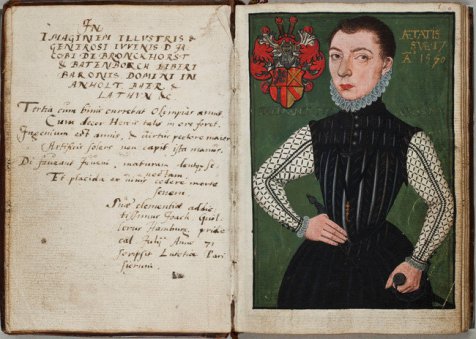 IN
IMAGINEM ILLUSTRIS &
GENEROSI IUVENIS D. IA
COBI DE BRONCKHORST
& BATENBORCH LIBERI
BARONIS DOMINI IN
ANHOLT BAER &
LATHUN &c
Tertia cum binis currebat Olympias annis
Cum decor Hoc is talis in ore foret.
Ingenium est annis, & virtus pectore maior
Artificis solers non capit ista manus.
Di faveant iuveni, maturam
Et placida ex
senem
Suae clementiae addic
tissimus Joach.
Hamburg. pridie
cal. Julij Anno 71
scripsit Lutetiae Pari
siorum.
ÆTATIS
SVE 17
A° 1570